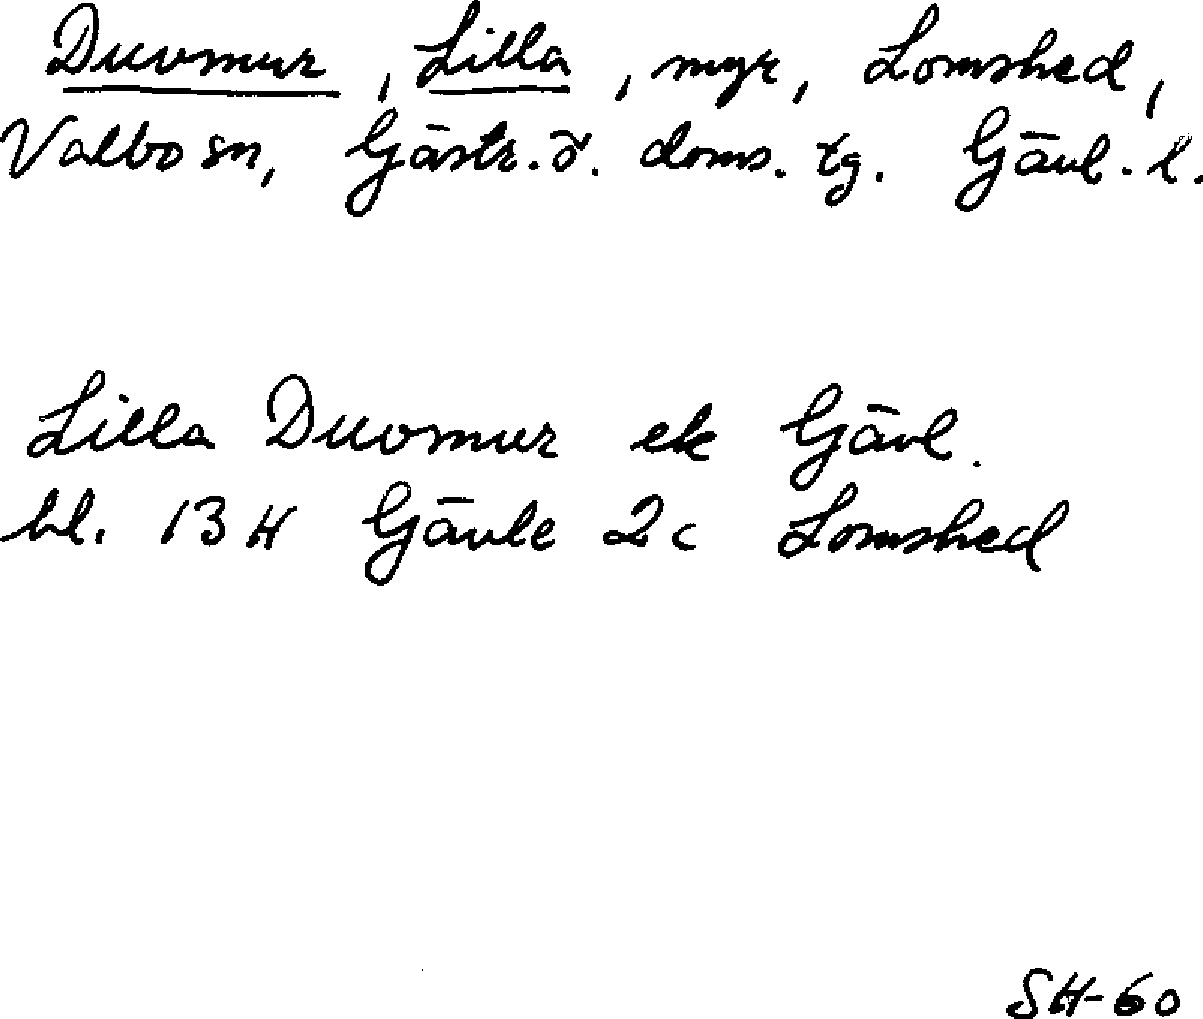 Duvmur, Lilla, myr, Lomshed,
Valbo sn, Gästr. ö. doms. tg. Gävl. l.
Lilla Duvmur ek Gävl.
bl. 13 H Gävle 2c Lomshed
SH-60